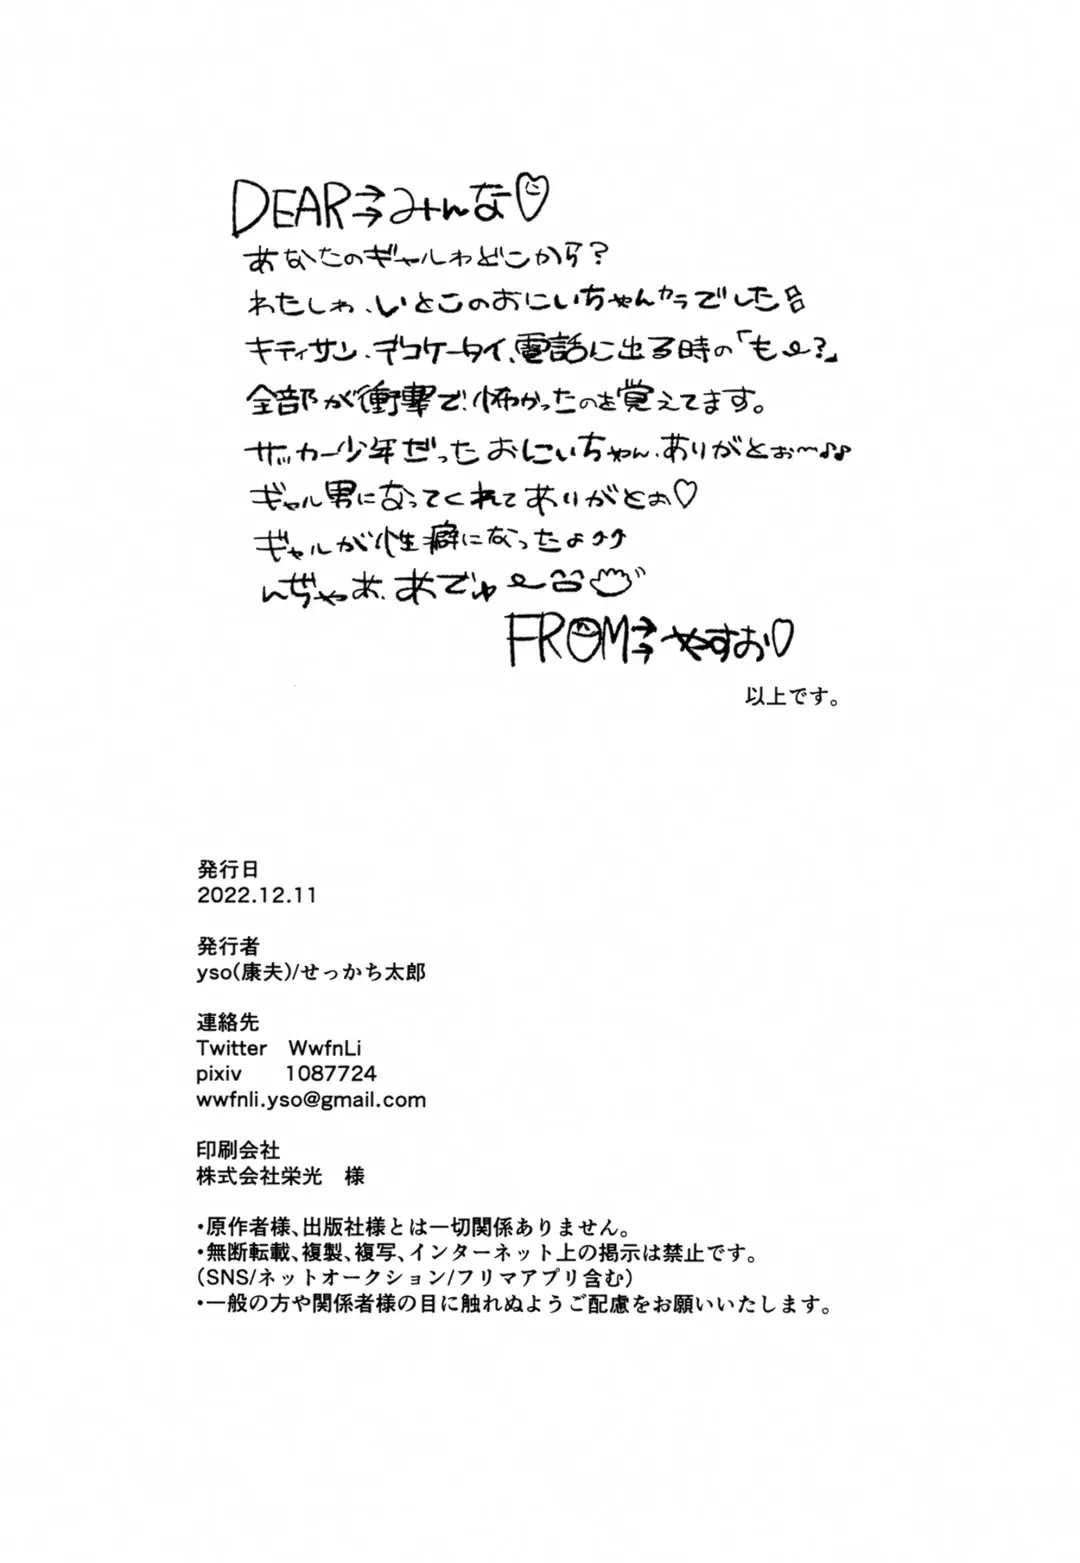 DEAR⇉みんな♡
あなたのギャルわどこから?
わたしわ、いとこのおにいちゃんカラでした
キティサン、デコケータイ、電話に出る時の「もー?」
全部が衝撃で、怖かったのを覚えてます。
サッカー少年だったおにいちゃん、ありがとぉ〜♪♪
ギャル男になってくれてありがとぉ♡
ギャルが性癖になったよ⤴⤴
んぢゃあ、あでゅー
FROM⇉やすお♡
以上です。
発行日
2022.12.11
発行者
yso(康夫)/せっかち太郎
連絡先
Twitter WwfnLi
pixiv 1087724
wwfnli.yso@gmail.com
印刷会社
株式会社栄光 様
・原作者様、出版社様とは一切関係ありません。
・無断転載、複製、複写、インターネット上の掲示は禁止です。
(SNS/ネットオークション/フリマアプリ含む)
・一般の方や関係者様の目に触れぬようご配慮をお願いいたします。